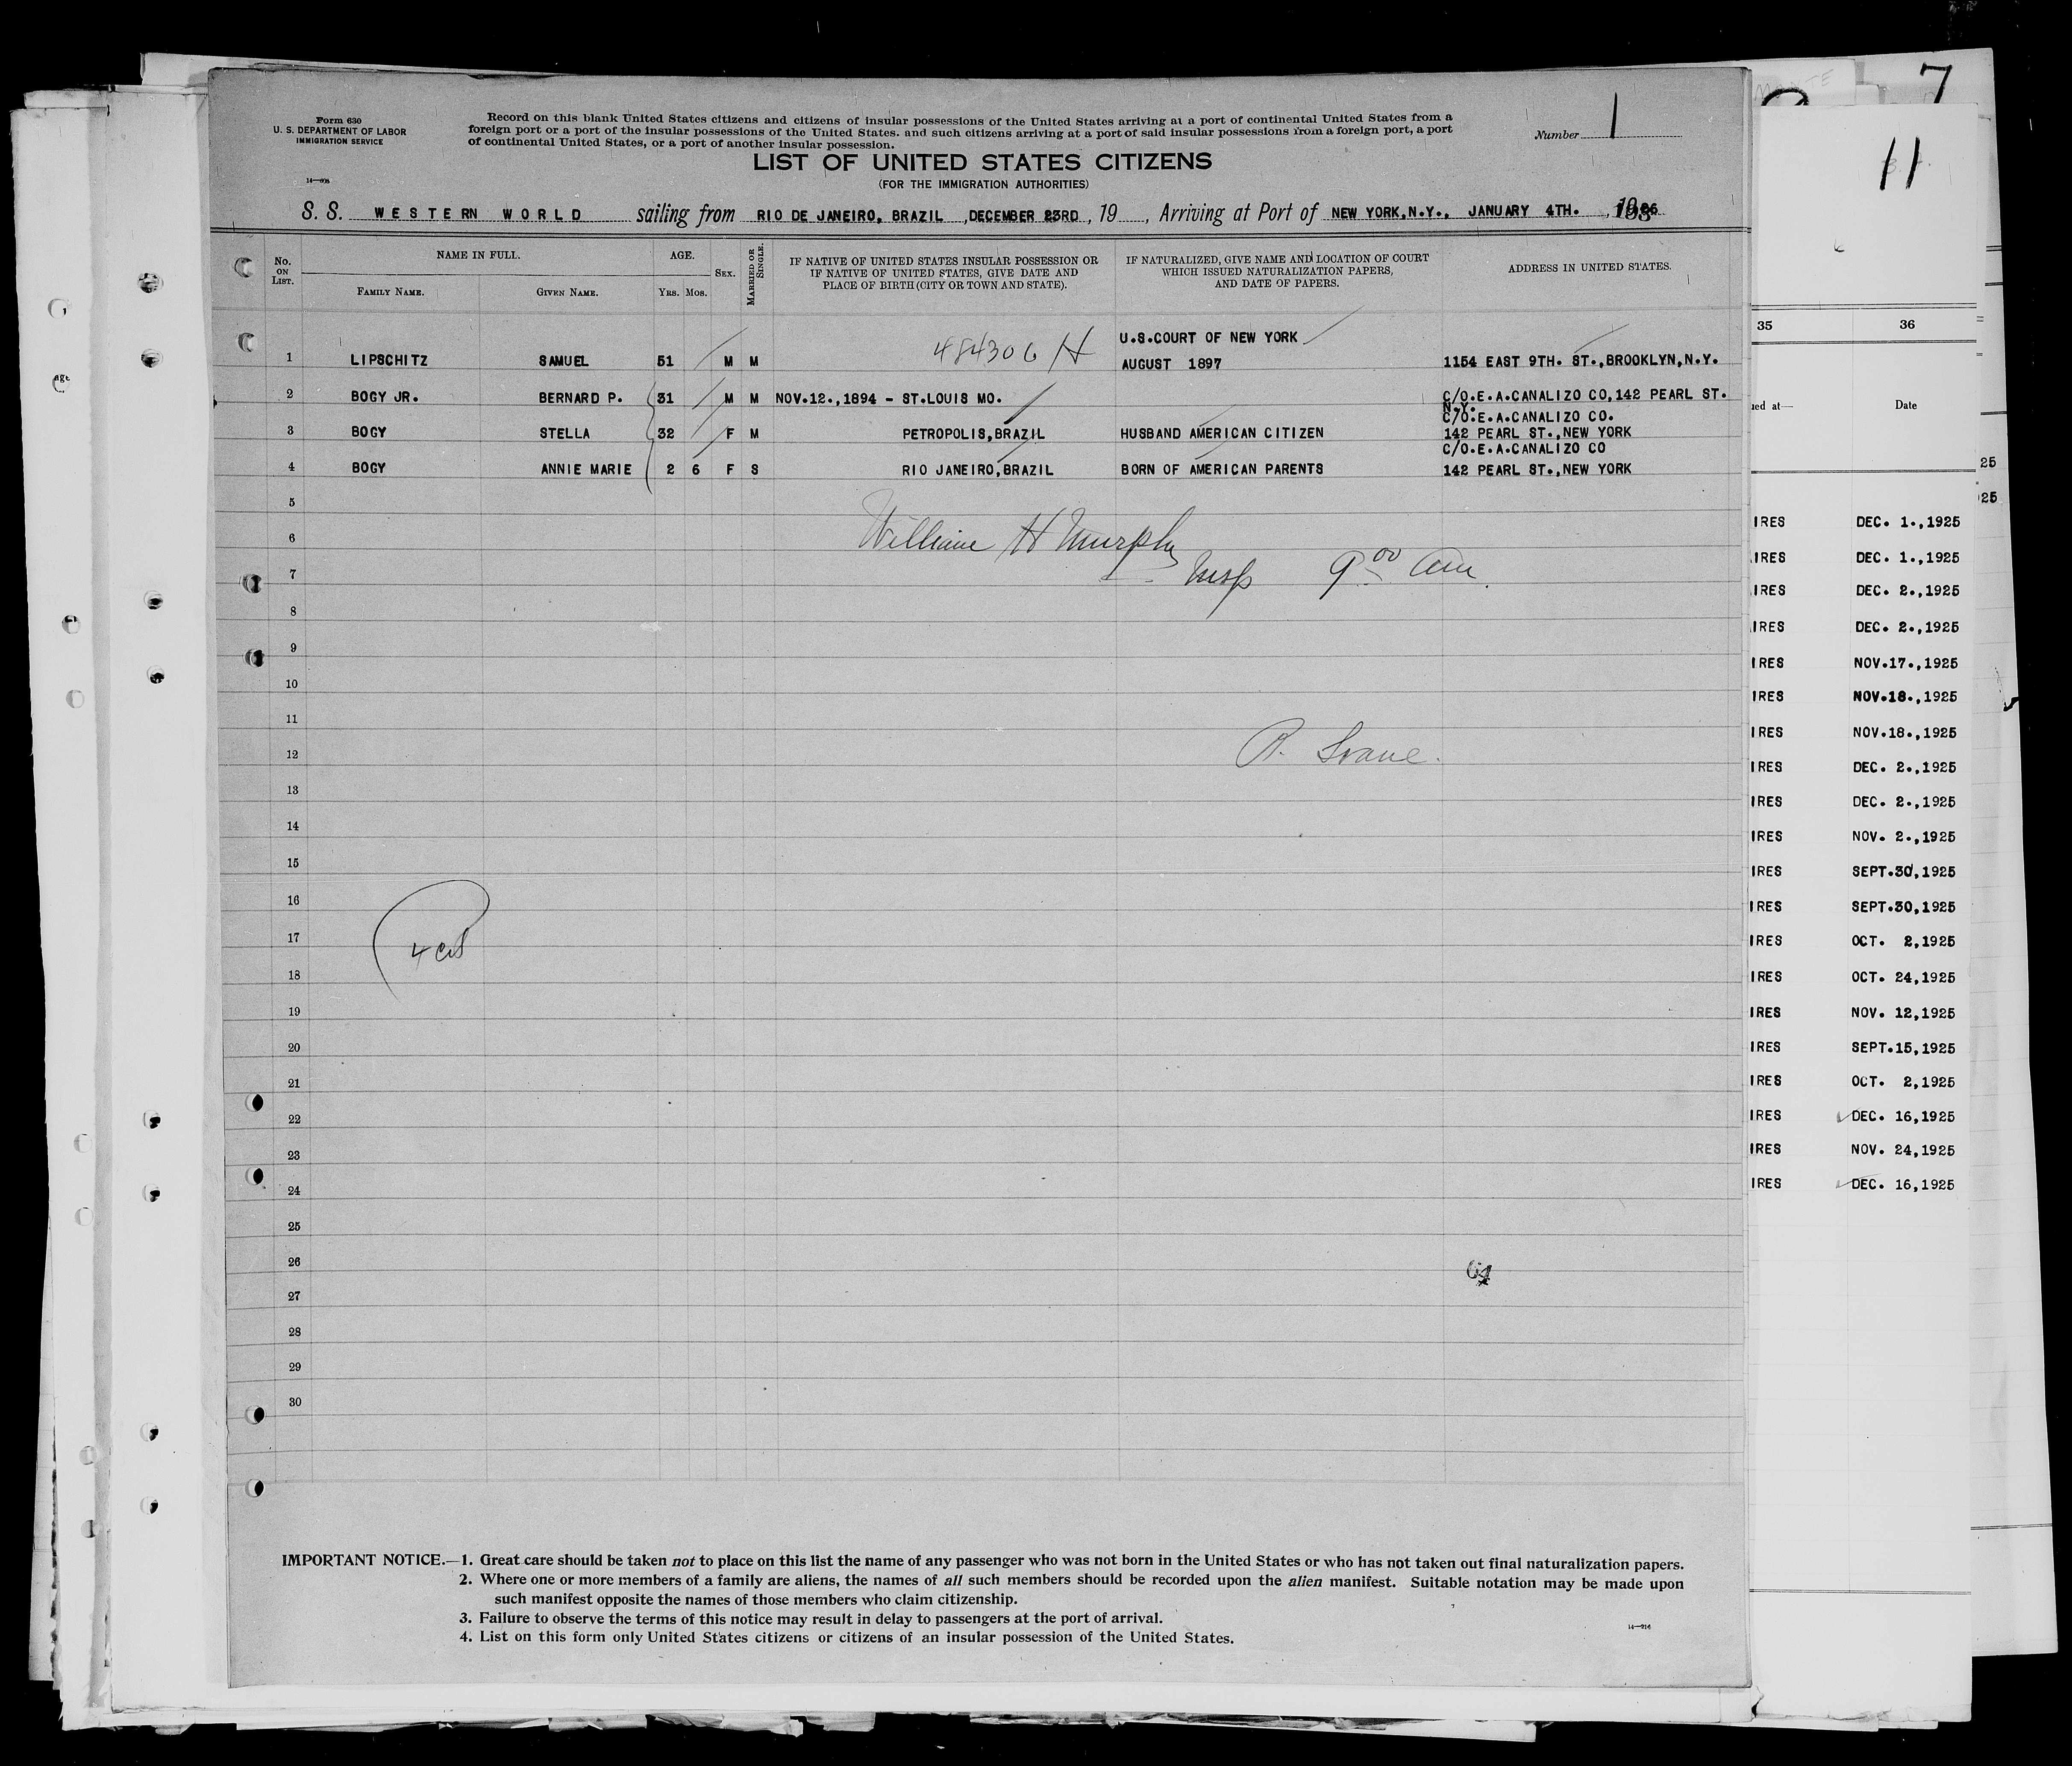 7
11
Form 630
U. S. DEPARTMENT OF LABOR
IMMIGRATION SERVICE
Record on this blank United States citizens and citizens of insular possessions of the United States arriving at a port of continental United States from a
foreign port or a port of the insular possessions of the United States. and such citizens arriving at a port of said insular possessions from a foreign port, a port
of continental United States, or a port of another insular possession.
Number 1
LIST OF UNITED STATES CITIZENS
(FOR THE IMMIGRATION AUTHORITIES)
S. S. WESTERN WORLD sailing from RIO DE JANEIRO, BRAZIL , DECEMBER 23RD , 19 , Arriving at Port of NEW YORK,N.Y., JANUARY 4TH. , 1926
No. ON LIST. NAME IN FULL. AGE. SEX. MARRIED OR SINGLE. IF NATIVE OF UNITED STATES INSULAR POSSESSION OR IF NATIVE OF UNITED STATES, GIVE DATE AND PLACE OF BIRTH (CITY OR TOWN AND STATE). IF NATURALIZED, GIVE NAME AND LOCATION OF COURT WHICH ISSUED NATURALIZATION PAPERS, AND DATE OF PAPERS. ADDRESS IN UNITED STATES.
FAMILY NAME. GIVEN NAME. YRS. MOS.
484306 H U.S.COURT OF NEW YORK
1 LIPSCHITZ SAMUEL 51 M M AUGUST 1897 1154 EAST 9TH. ST.,BROOKLYN,N.Y.
2 BOGY JR. BERNARD P. 31 M M NOV.12.,1894 - ST.LOUIS MO. C/O.E.A.CANALIZO CO,142 PEARL ST.
N.Y.
C/O.E.A.CANALIZO CO.
3 BOGY STELLA 32 F M PETROPOLIS,BRAZIL HUSBAND AMERICAN CITIZEN 142 PEARL ST.,NEW YORK
C/O.E.A.CANALIZO CO
4 BOGY ANNIE MARIE 2 6 F S RIO JANEIRO,BRAZIL BORN OF AMERICAN PARENTS 142 PEARL ST.,NEW YORK
5
6 William H Murphy
7 Insp 9 00 am.
8
9
10
11
12
13
14
15
16
17
18
19
20
21
22
23
24
25
26
27
28
29
30
64
IMPORTANT NOTICE.—1. Great care should be taken not to place on this list the name of any passenger who was not born in the United States or who has not taken out final naturalization papers.
2. Where one or more members of a family are aliens, the names of all such members should be recorded upon the alien manifest. Suitable notation may be made upon
such manifest opposite the names of those members who claim citizenship.
3. Failure to observe the terms of this notice may result in delay to passengers at the port of arrival.
4. List on this form only United States citizens or citizens of an insular possession of the United States.
14—916
35 36
ued at— Date
25
25
IRES DEC. 1.,1925
IRES DEC. 1.,1925
IRES DEC. 2.,1925
IRES DEC. 2.,1925
IRES NOV.17.,1925
IRES NOV.18.,1925
IRES NOV.18.,1925
IRES DEC. 2.,1925
IRES DEC. 2.,1925
IRES NOV. 2.,1925
IRES SEPT.30,1925
IRES SEPT.30,1925
IRES OCT. 2,1925
IRES OCT. 24,1925
IRES NOV. 12,1925
IRES SEPT.15,1925
IRES OCT. 2,1925
IRES DEC. 16,1925
IRES NOV. 24,1925
IRES DEC. 16,1925